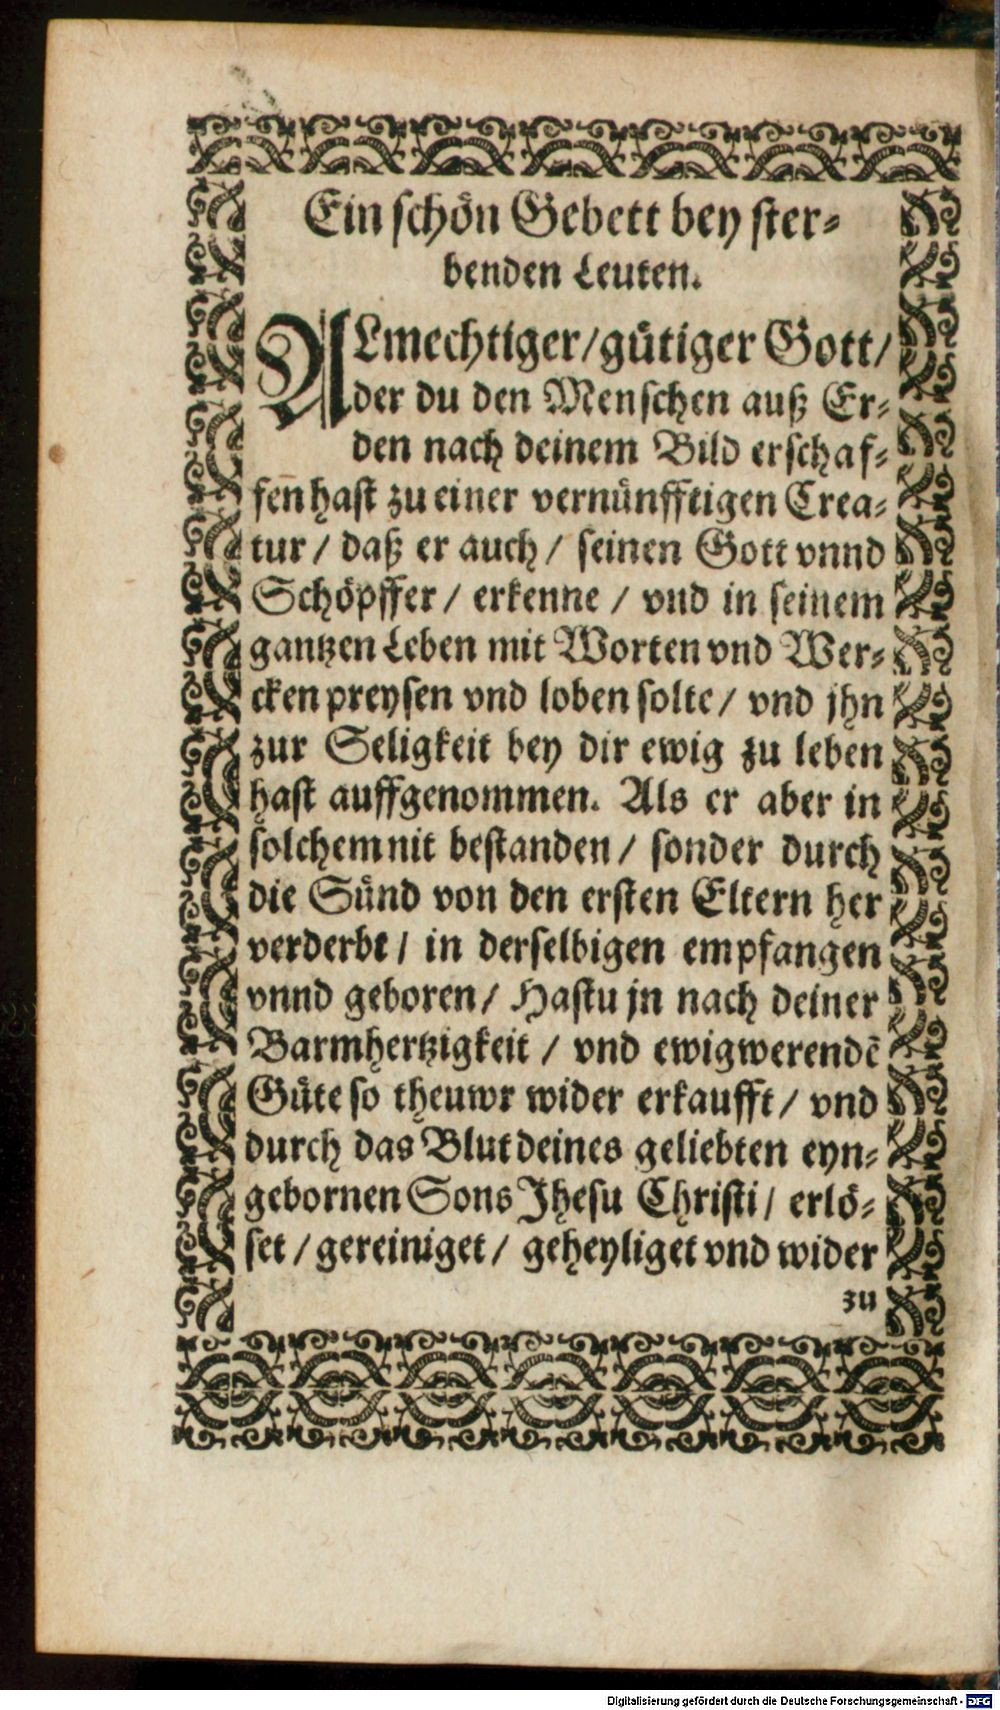 Ein schön Gebett bey ster-
benden Leuten.
ALmechtiger/gütiger Gott/
der du den Menschen auß Er-
den nach deinem Bild erschaf-
fen hast zu einer vernünfftigen Crea-
tur / daß er auch / seinen Gott vnnd
Schöpffer / erkenne / vnd in seinem
gantzen Leben mit Worten vnd Wer-
cken preysen vnd loben solte / vnd jhn
zur Seligkeit bey dir ewig zu leben
hast auffgenommen. Als er aber in
solchem nit bestanden / sonder durch
die Sünd von den ersten Eltern her
verderbt / in derselbigen empfangen
vnnd geboren / Hastu jn nach deiner
Barmhertzigkeit / vnd ewigwerendē
Güte so theuwr wider erkaufft / vnd
durch das Blut deines geliebten eyn-
gebornen Sons Jhesu Christi / erlö-
set / gereiniget / geheyliget vnd wider
zu
Digitalisierung gefördert durch die Deutsche Forschungsgemeinschaft - DFG